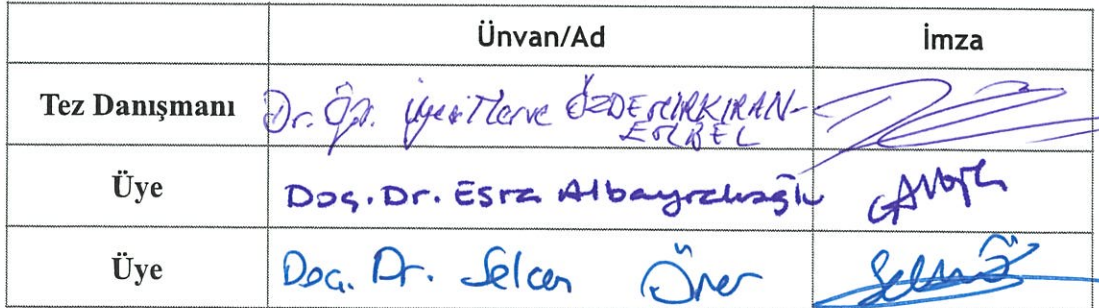 Ünvan/Ad İmza
Tez Danışmanı Dr. Öğr. Üyesi Merve ÖZDEMİRKIRAN-
EMBEL
Üye Doç. Dr. Esra Albayrakoğlu
Üye Doç. Dr. Selcen Öner